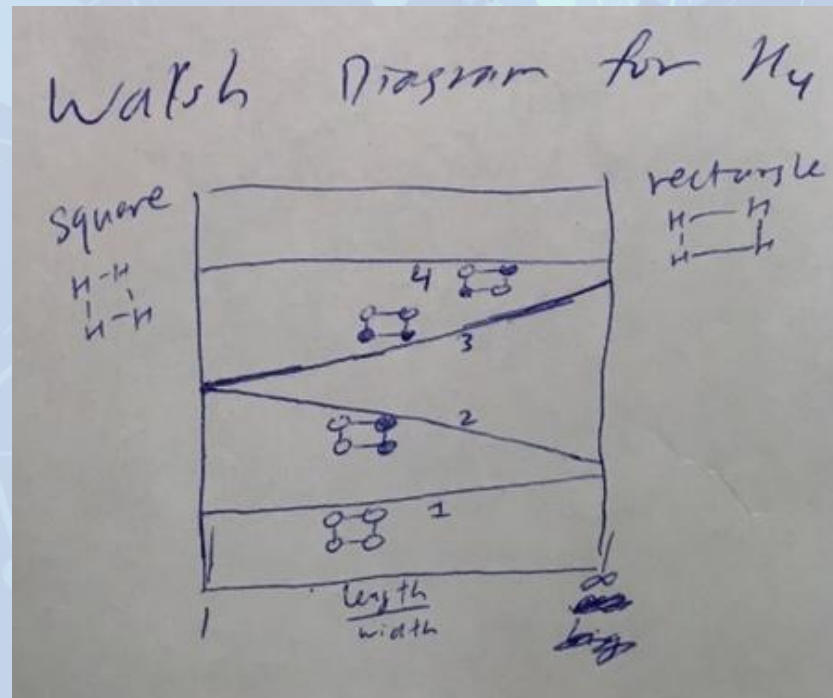 Walsh Diagram for H4
square
rectangle
H-H
H-H
H-H
H-H
4
3
2
1
1
length
width
∞